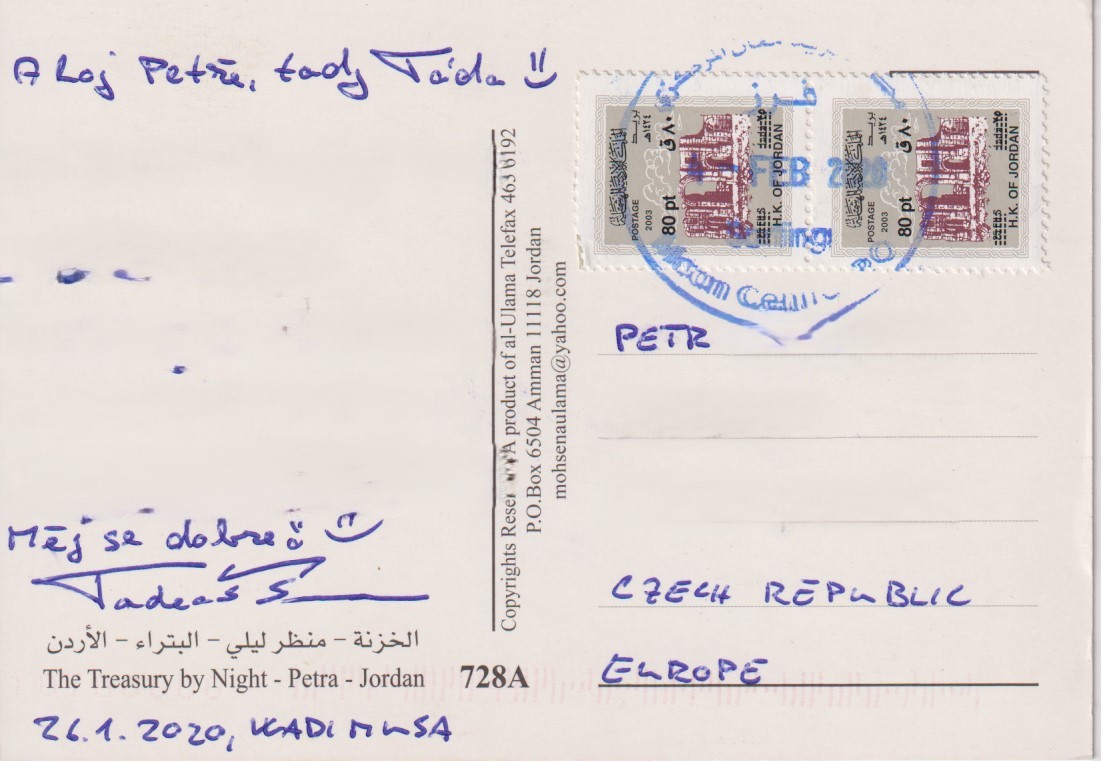 Ahoj Petře, tady Táďa
Měj se dobře
Tadeáš S
الخزنة – منظر ليلي – البتراء – الأردن
The Treasury by Night - Petra - Jordan 728A
26.1.2020, WADI MUSA
A product of al-Ulama Telefax 463 6192
P.O.Box 6504 Amman 11118 Jordan
mohsenaulama@yahoo.com
بريد
١٤٢٤هـ
٨٠ ق
POSTAGE
2003
80 pt
H.K. OF JORDAN
بريد
١٤٢٤هـ
٨٠ ق
POSTAGE
2003
80 pt
H.K. OF JORDAN
فرز
FEB 2020
PETR
CZECH REPUBLIC
EUROPE